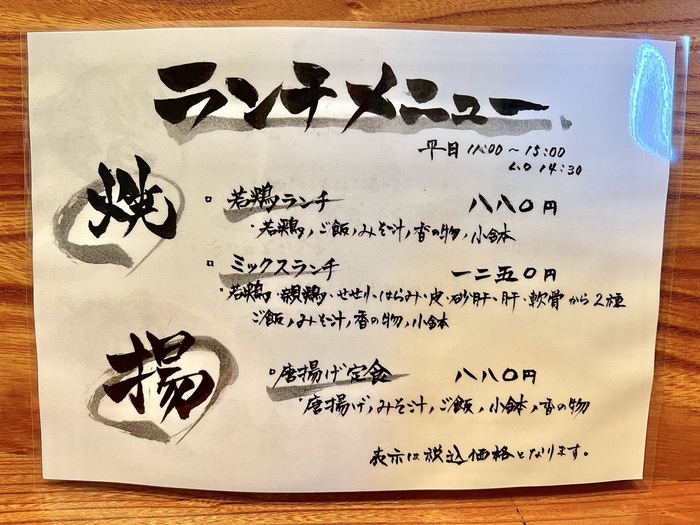 ランチメニュー
平日 11:00~15:00
L.O 14:30
焼
若鶏ランチ 八八〇円
・若鶏、ご飯、みそ汁、香の物、小鉢
ミックスランチ 一二五〇円
・若鶏・親鶏・せせり・はらみ・皮・砂肝・肝・軟骨から2種
ご飯、みそ汁、香の物、小鉢
揚
唐揚げ定食 八八〇円
・唐揚げ、みそ汁、ご飯、小鉢、香の物
表示は税込価格となります。